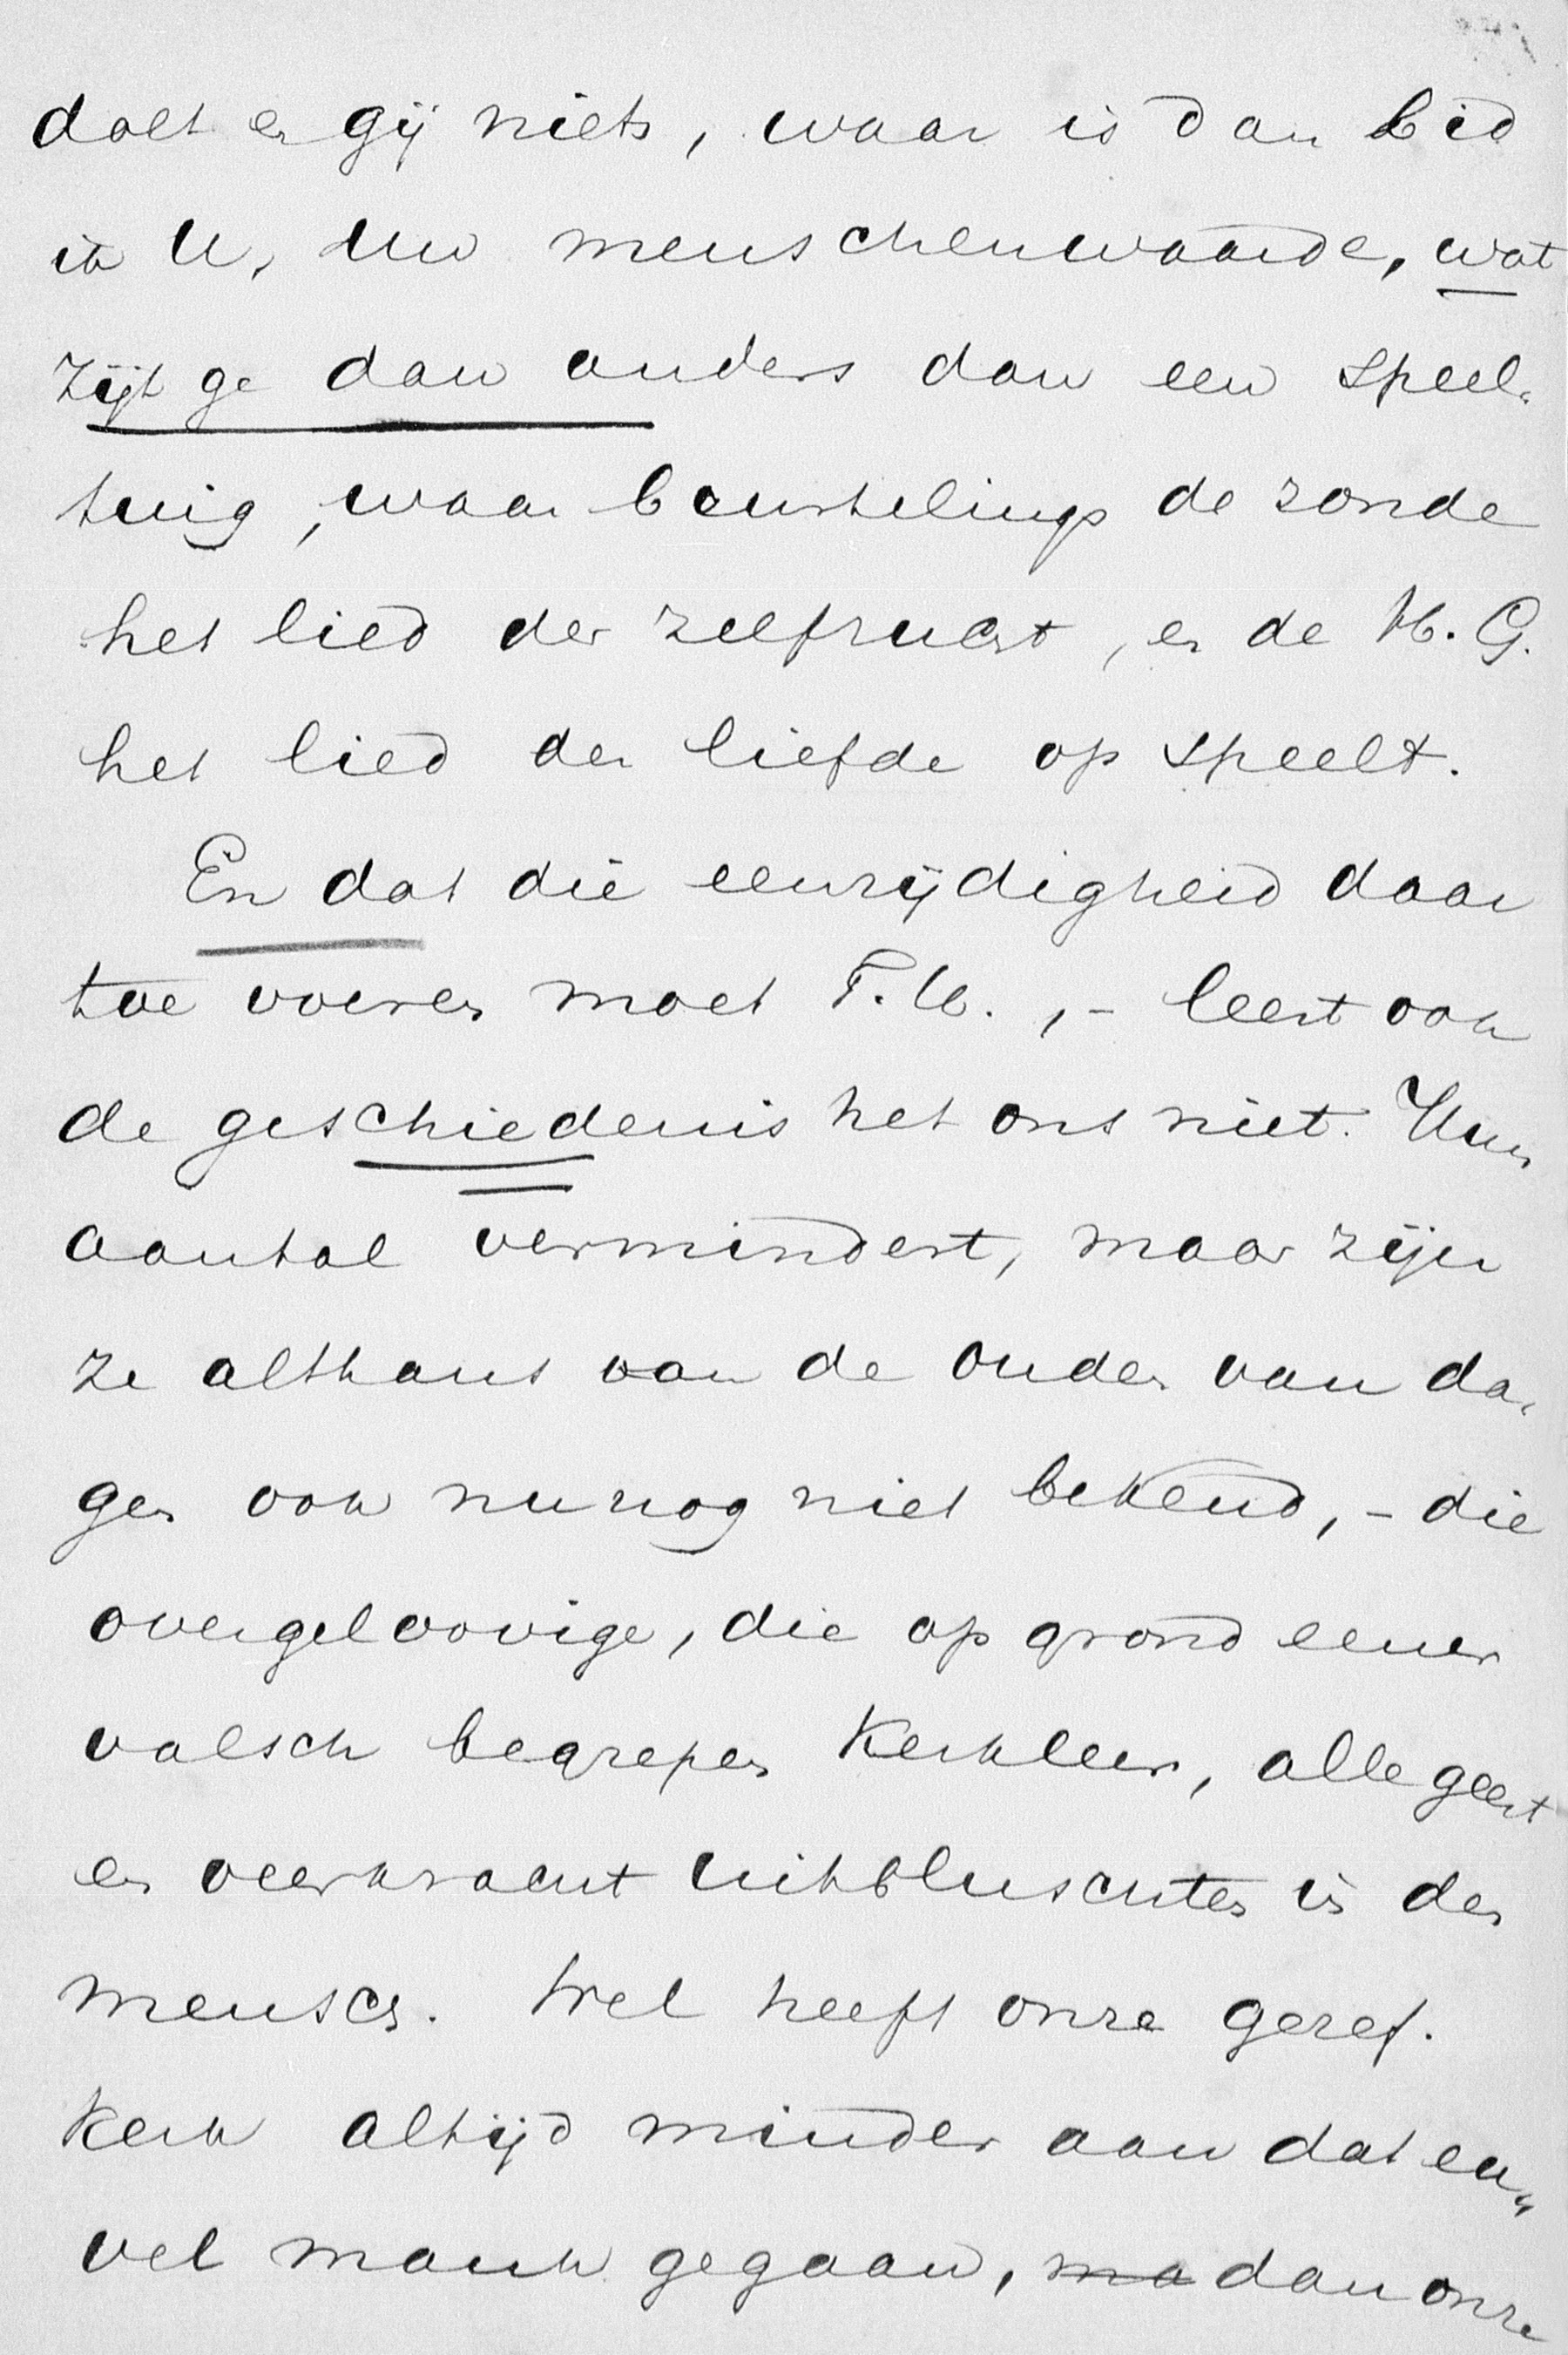 doet en gij niets, waar is dan bid
ik U, Uw menschenwaarde, wat
zijt ge dan anders dan een speel-
tuig, waar beurtelings de zonde
het lied der zelfzucht, en de H. G.
het lied der liefde op speelt.
En dat die eenzijdigheid daar
toe voeren moet T. U., - leert ook
de geschiedenis het ons niet. Hun
aantal vermindert, maar zijn
ze althans van de ouden van da-
gen ook nu nog niet bekend, - die
overgeloovige, die op grond eener
valsch begrepen Kerkleer, alle geest
en veerkracht uitbluschten in den
mensch. Wel heeft onze geref.
Kerk altijd minder aan dat eu-
vel mank gegaan, ma dan onze